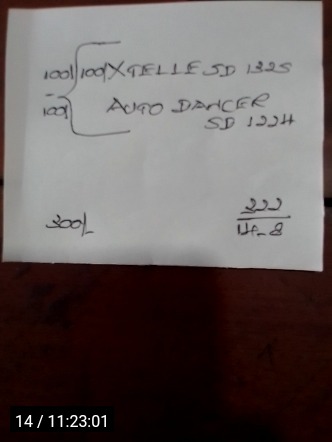 100/ 100/ XTELLE SD 1325
100/ AUTO DANCER
SD 1224
300/-
222
14-8
14 / 11:23:01